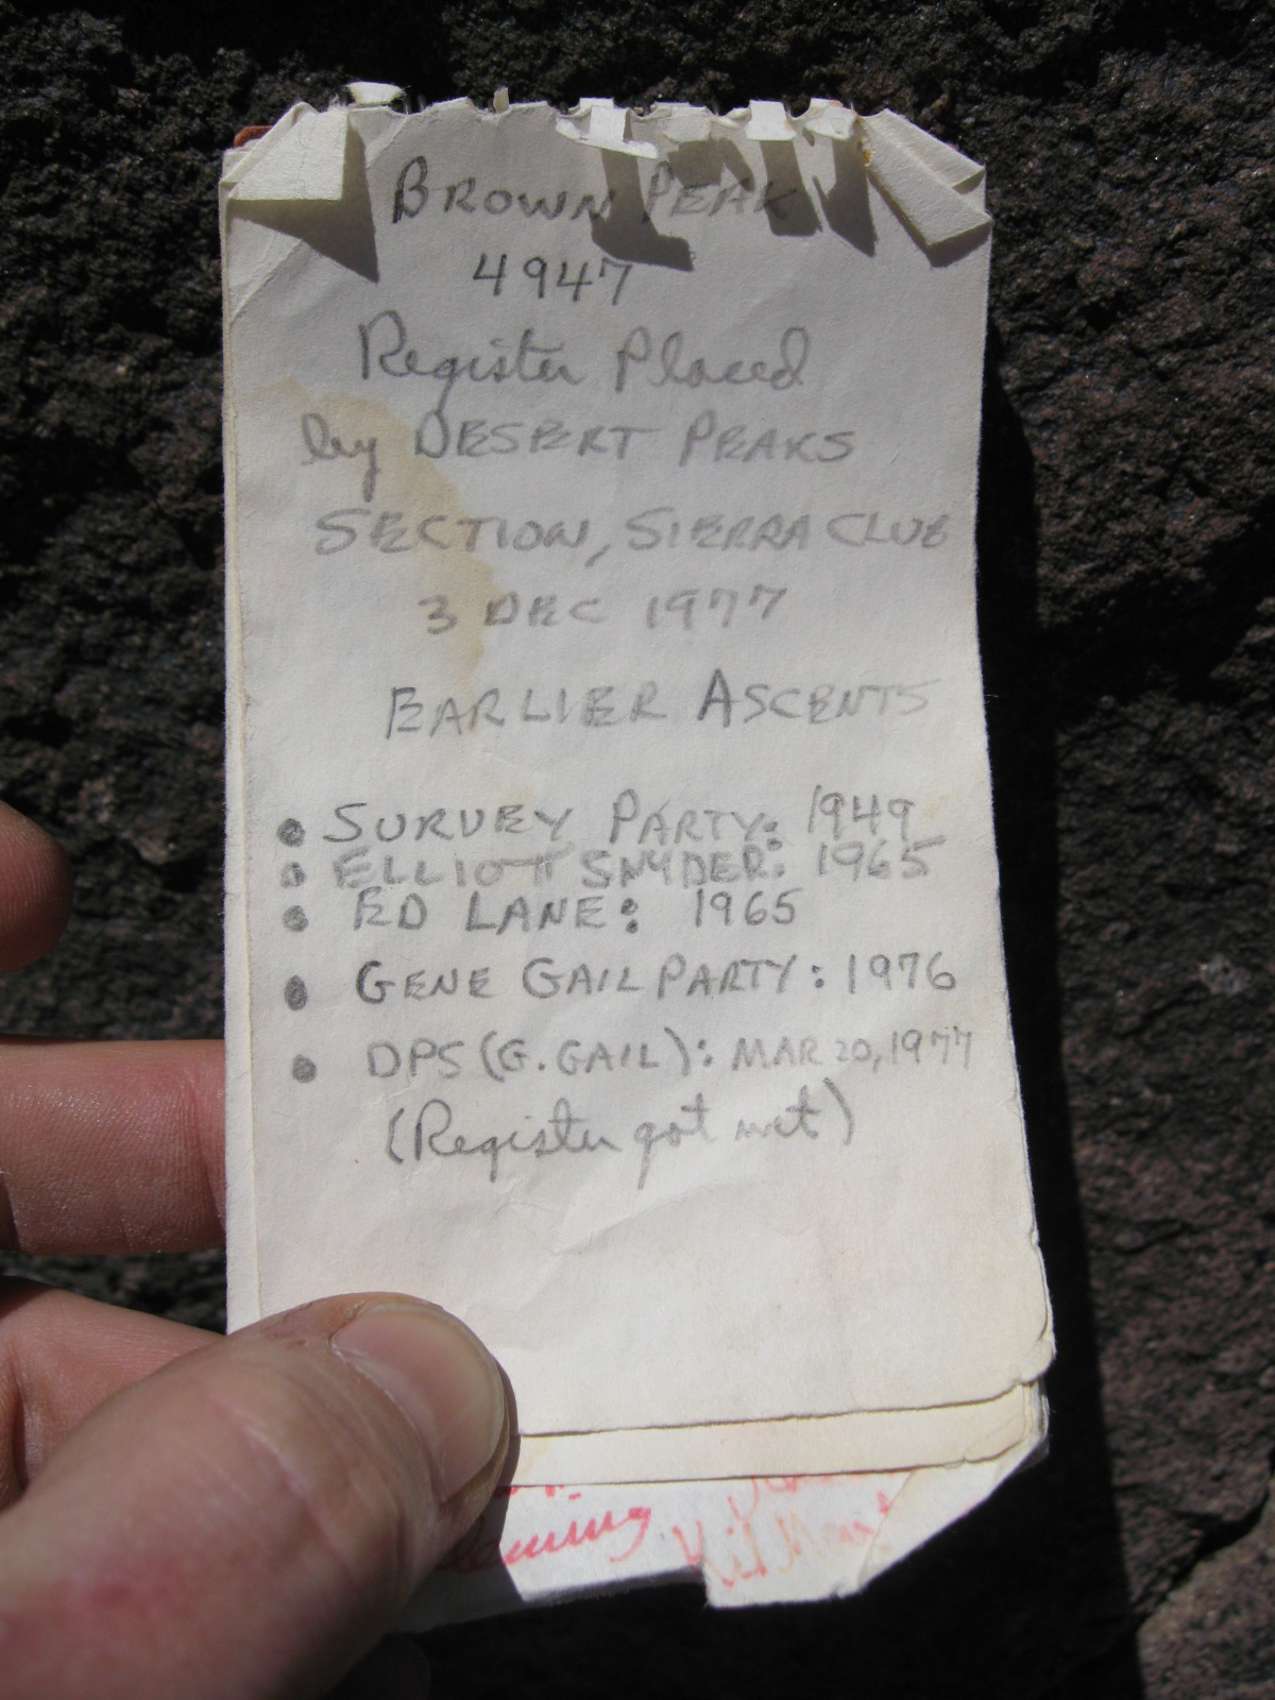 BROWN PEAK
4947
Register Placed
by DESERT PEAKS
SECTION, SIERRA CLUB
3 DEC 1977
EARLIER ASCENTS
• SURVEY PARTY: 1949
• ELLIOTT SNYDER: 1965
• ED LANE: 1965
• GENE GAIL PARTY: 1976
• DPS (G. GAIL): MAR 20, 1977
(Register got wet)